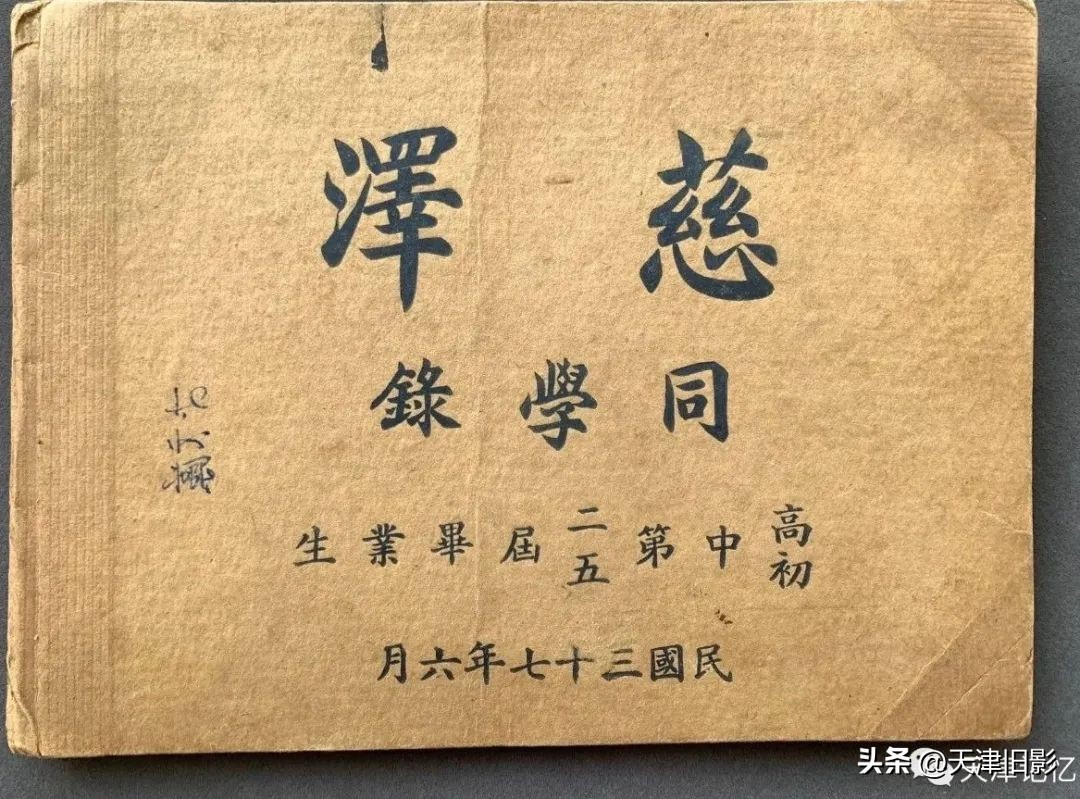 慈澤
同學錄
高初中第二五屆畢業生
民國三十七年六月
头条 @天津旧影
天津记忆